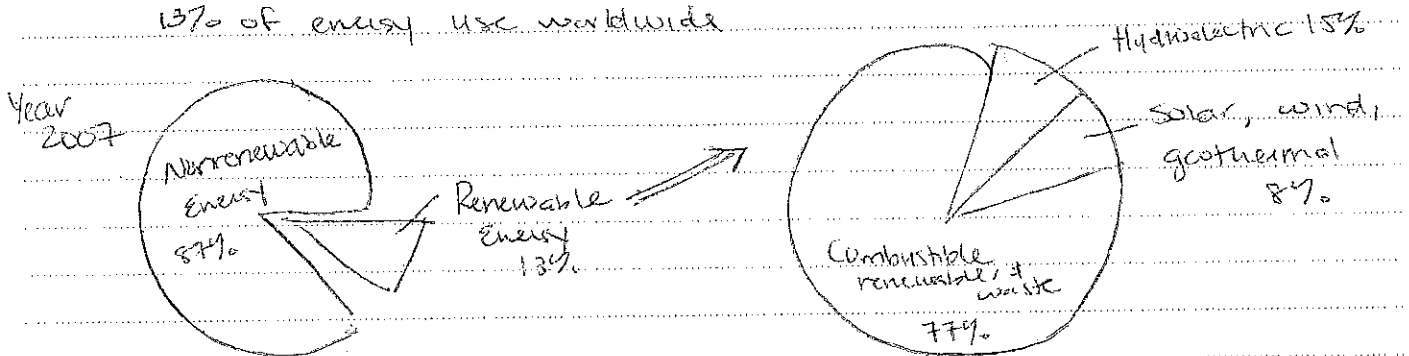 13% of energy use worldwide
Year
2007
Nonrenewable
Energy
87%
Renewable
Energy
13%
Hydroelectric 15%
Solar, wind,
geothermal
8%
Combustible
renewable, +
waste
77%